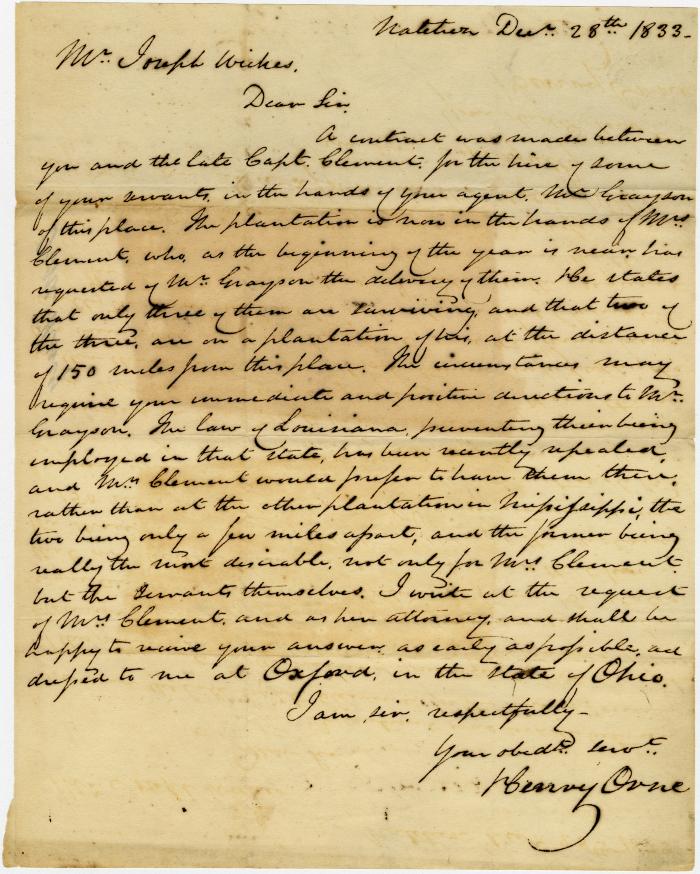 Natchez Decr. 28th 1833-
Mr. Joseph Wickes.
Dear Sir
A contract was made between
you and the late Capt. Clement, for the hire of some
of your servants, in the hands of your agent, Mr Grayson
of this place. The plantation is now in the hands of Mrs
Clement, who, as the beginning of the year is near, has
requested of Mr. Grayson the delivery of them. He states
that only three of them are surviving, and that two of
the three, are on a plantation of his, at the distance
of 150 miles from this place. The circumstances may
require your immediate and positive directions to Mr.
Grayson. The law of Louisiana, preventing their being
employed in that state, has been recently repealed,
and Mrs Clement would prefer to have them there,
rather than at the other plantation in Mississippi, the
two being only a few miles apart, and the former being
really the most desirable, not only for Mrs Clement
but the servants themselves. I write at the request
of Mrs Clement, and as her attorney, and shall be
happy to receive your answer, as early as possible, ad
dressed to me at Oxford, in the state of Ohio.
I am, sir, respectfully-
Your obedt. servt.
Henry Orne